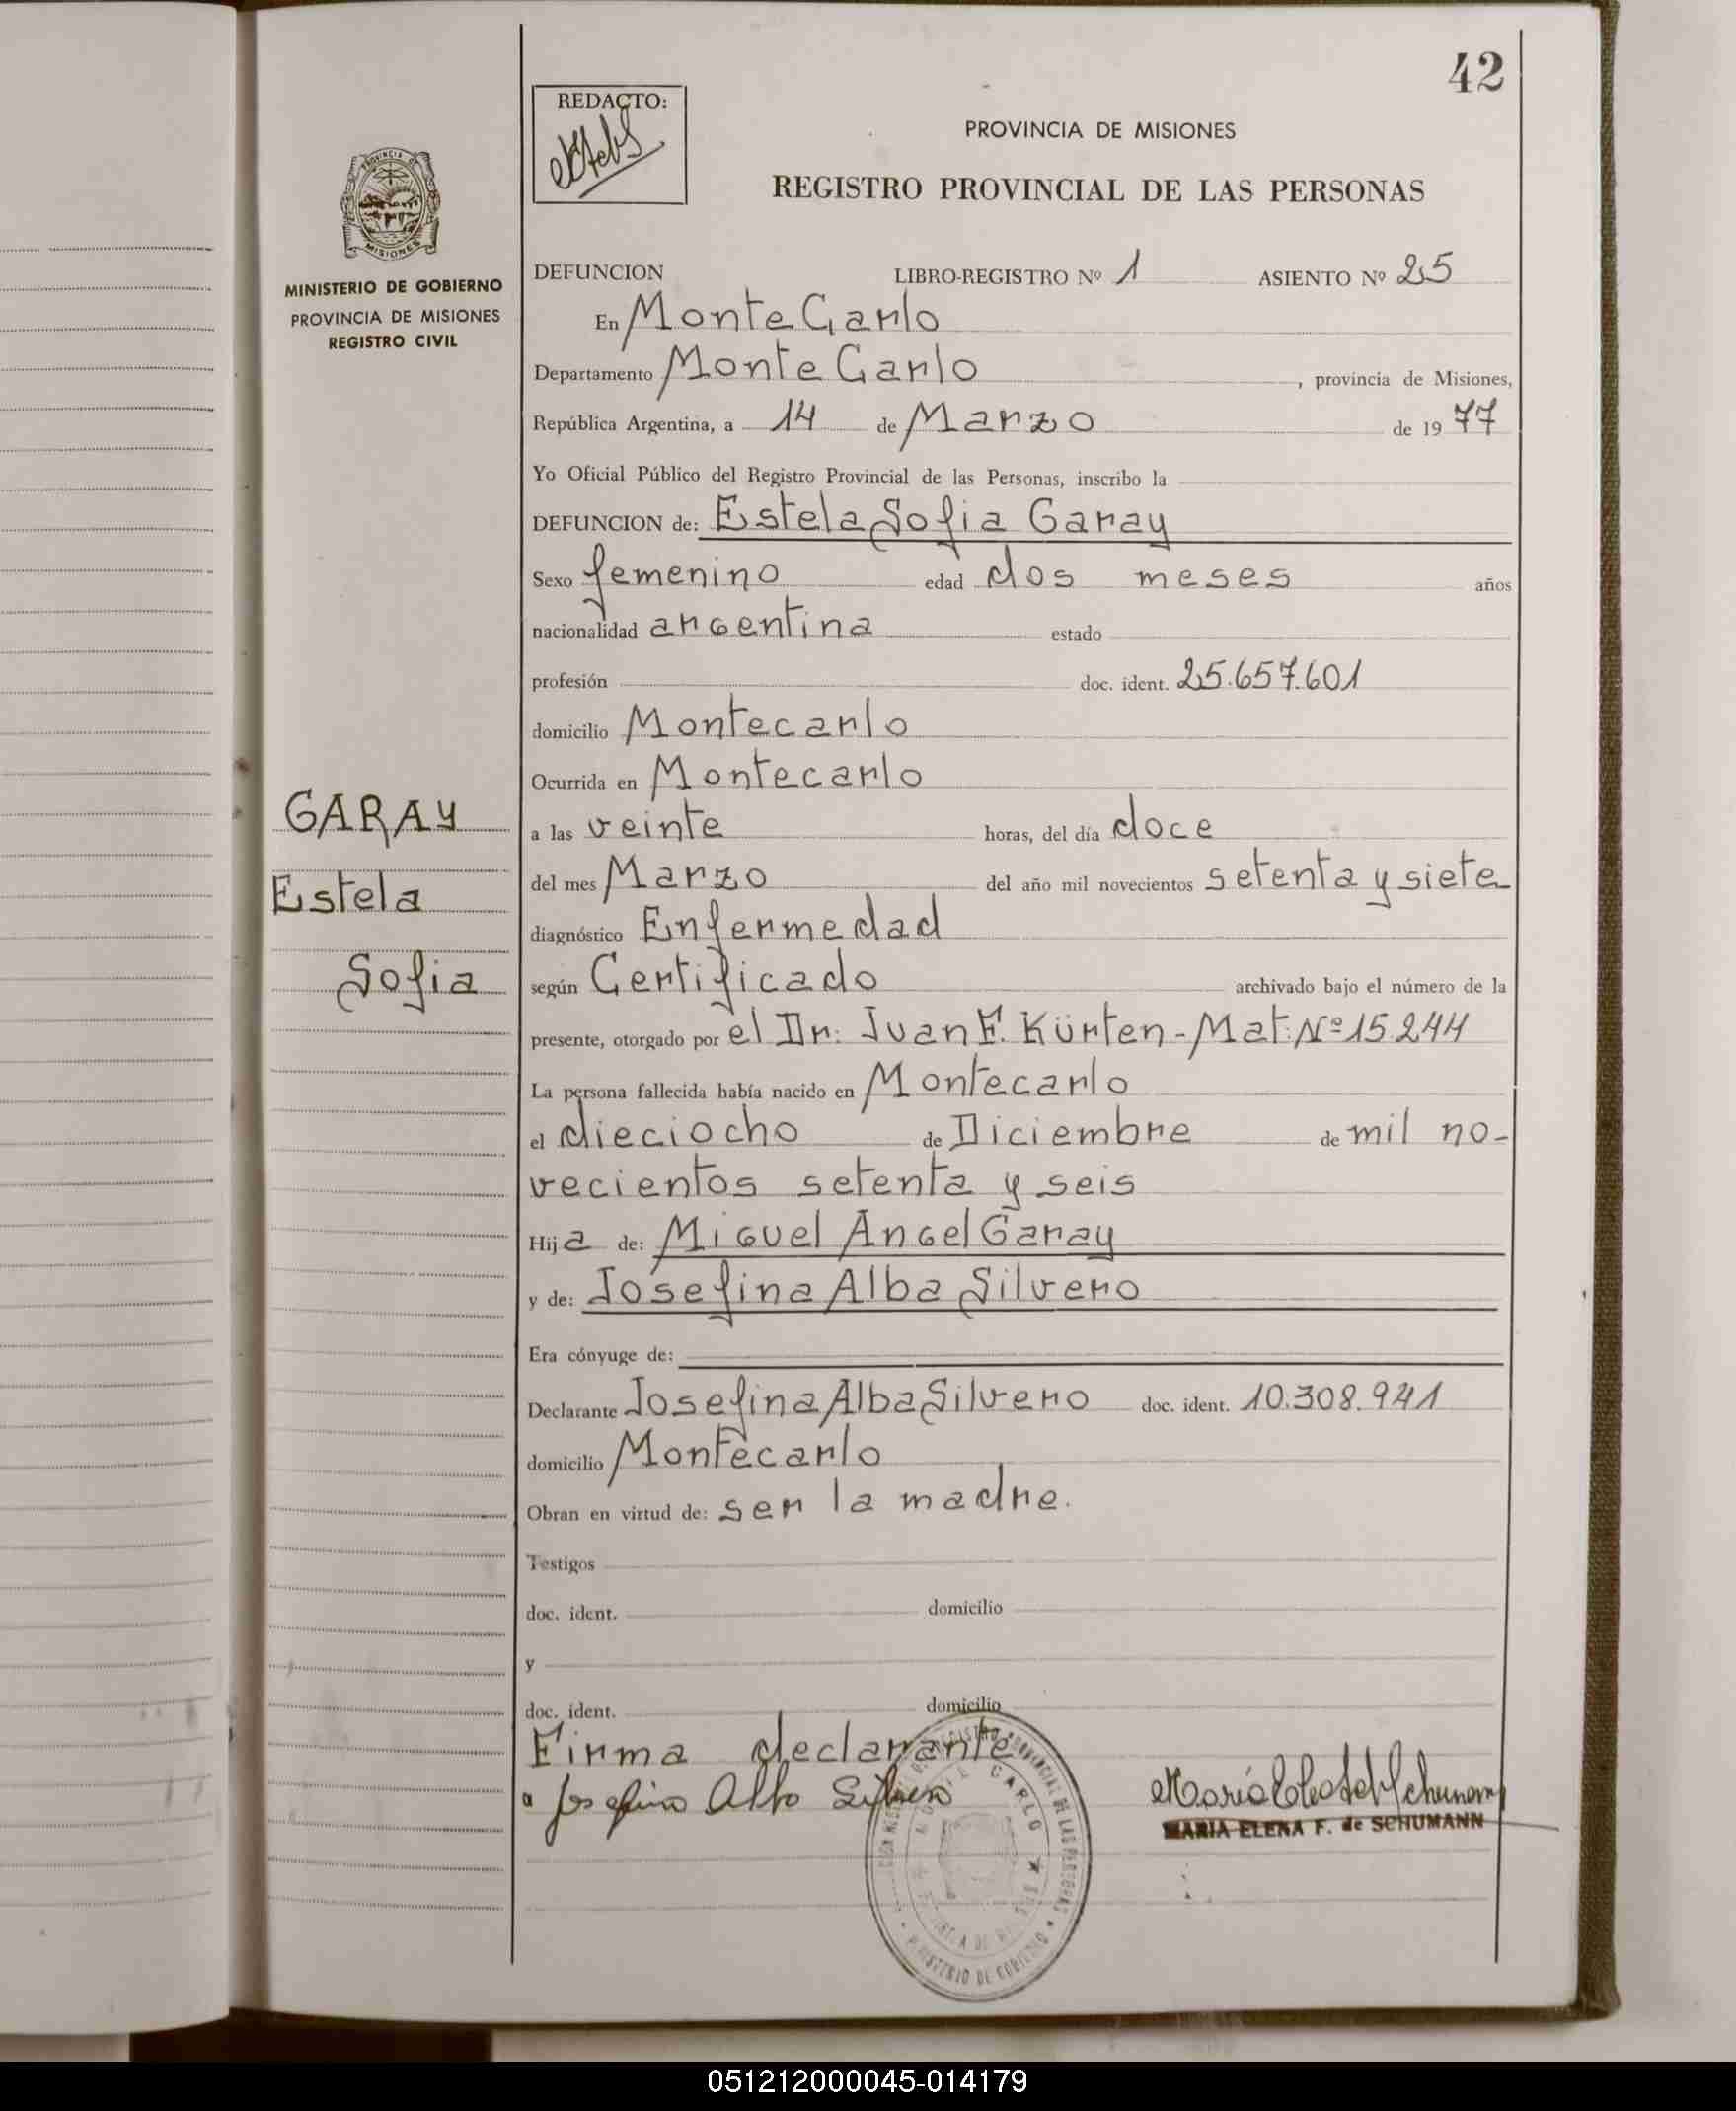 42
REDACTO:
PROVINCIA DE MISIONES
REGISTRO PROVINCIAL DE LAS PERSONAS
PROVINCIA DE
MISIONES
MINISTERIO DE GOBIERNO
PROVINCIA DE MISIONES
REGISTRO CIVIL
DEFUNCION LIBRO-REGISTRO Nº 1 ASIENTO Nº 25
En Monte Carlo
Departamento Monte Carlo , provincia de Misiones,
República Argentina, a 14 de Marzo de 19 77
Yo Oficial Público del Registro Provincial de las Personas, inscribo la
DEFUNCION de: Estela Sofia Garay
Sexo femenino edad dos meses años
nacionalidad argentina estado
profesión doc. ident. 25.657.601
domicilio Montecarlo
Ocurrida en Montecarlo
GARAY
Estela
Sofia
a las veinte horas, del día doce
del mes Marzo del año mil novecientos setenta y siete
diagnóstico Enfermedad
según Certificado archivado bajo el número de la
presente, otorgado por el Dr. Juan F. Kürten - Mat: Nº 15.244
La persona fallecida había nacido en Montecarlo
el dieciocho de Diciembre de mil no-
vecientos setenta y seis
Hija de: Miguel Angel Garay
y de: Josefina Alba Silvero
Era cónyuge de:
Declarante Josefina Alba Silvero doc. ident. 10.308.941
domicilio Montecarlo
Obran en virtud de: ser la madre.
Testigos
doc. ident. domicilio
y
doc. ident. domicilio
Firma declarante
Josefina Alba Silvero
MARIA ELENA F. de SCHUMANN
CARLO
MINISTERIO DE GOBIERNO
051212000045-014179